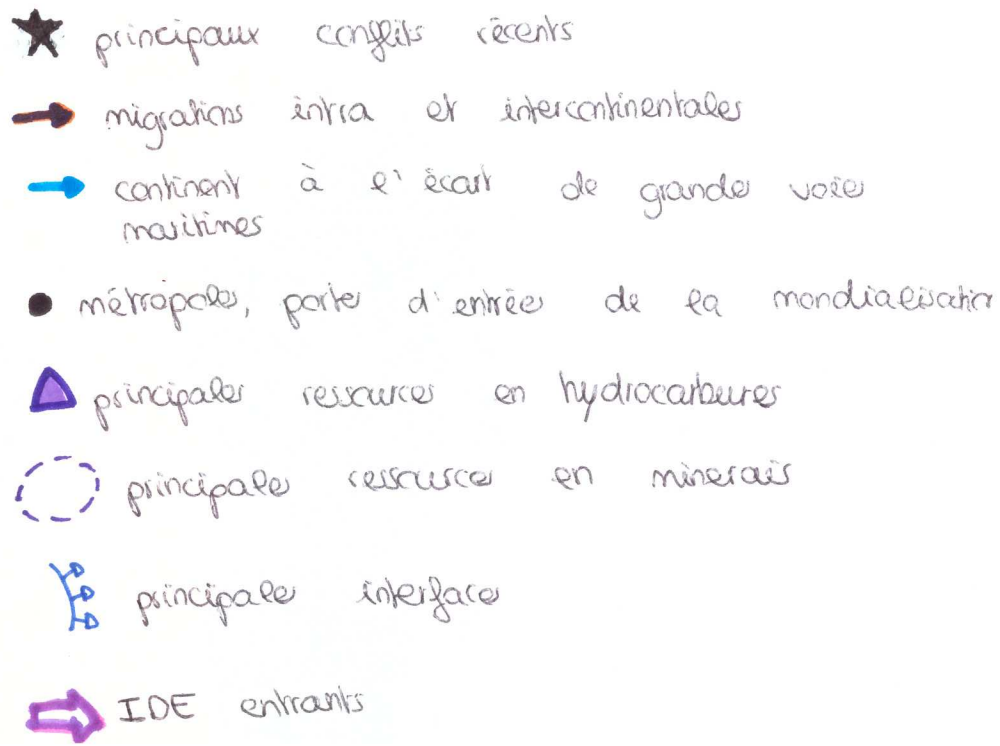 principaux conflits récents
migrations intra et intercontinentales
continent à l'écart de grandes voies
maritimes
métropoles, portes d'entrées de la mondialisation
principales ressources en hydrocarbures
principales ressources en minerais
principales interfaces
IDE entrants